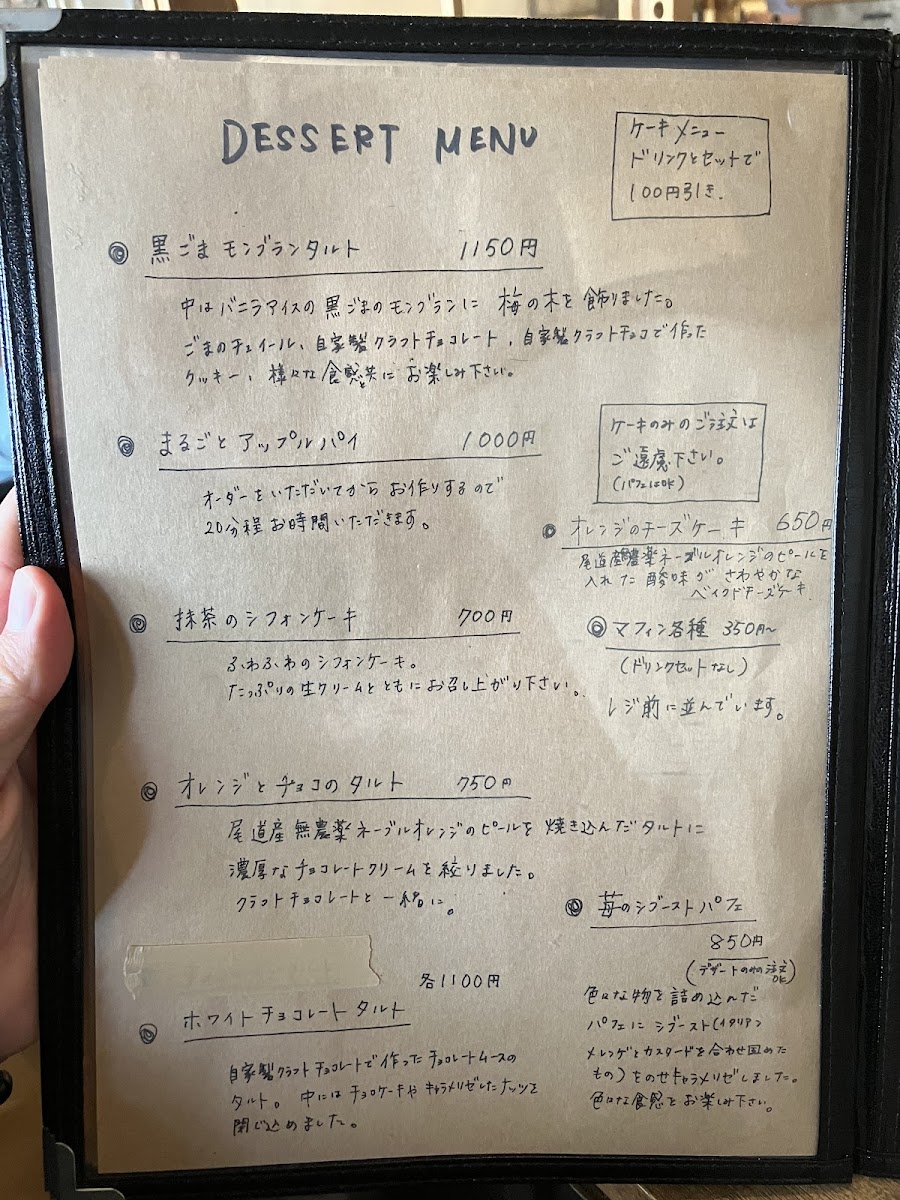 DESSERT MENU
ケーキメニュー
ドリンクとセットで
100円引き.
◎ 黒ごまモンブランタルト 1150円
中はバニラアイスの黒ごまのモンブランに 梅の木を飾りました。
ごまのチュイール、自家製クラフトチョコレート、自家製クラフトチョコで作った
クッキー、様々な食感と共にお楽しみ下さい。
◎ まるごとアップルパイ 1000円
オーダーをいただいてからお作りするので
20分程お時間いただきます。
ケーキのみのご注文は
ご遠慮下さい。
(パフェはOK)
◎ オレンジのチーズケーキ 650円
尾道産無農薬ネーブルオレンジのピールを
入れた酸味がさわやかな
ベイクドチーズケーキ.
◎ マフィン各種 350円〜
(ドリンクセットなし)
レジ前に並んでいます。
◎ 抹茶のシフォンケーキ 700円
ふわふわのシフォンケーキ。
たっぷりの生クリームとともにお召し上がり下さい。
◎ オレンジとチョコのタルト 750円
尾道産無農薬ネーブルオレンジのピールを焼き込んだタルトに
濃厚なチョコレートクリームを絞りました。
クラフトチョコレートと一緒に。
各1100円
◎ ホワイトチョコレートタルト
自家製クラフトチョコレートで作ったチョコレートムースの
タルト。中にはチョコケーキやキャラメリゼしたナッツを
閉じ込めました。
◎ 苺のシブーストパフェ
850円
(デザートのみの注文OK)
色々な物を詰め込んだ
パフェにシブースト(イタリアン
メレンゲとカスタードを合わせ固めた
もの)をのせキャラメリゼしました。
色々な食感をお楽しみ下さい。